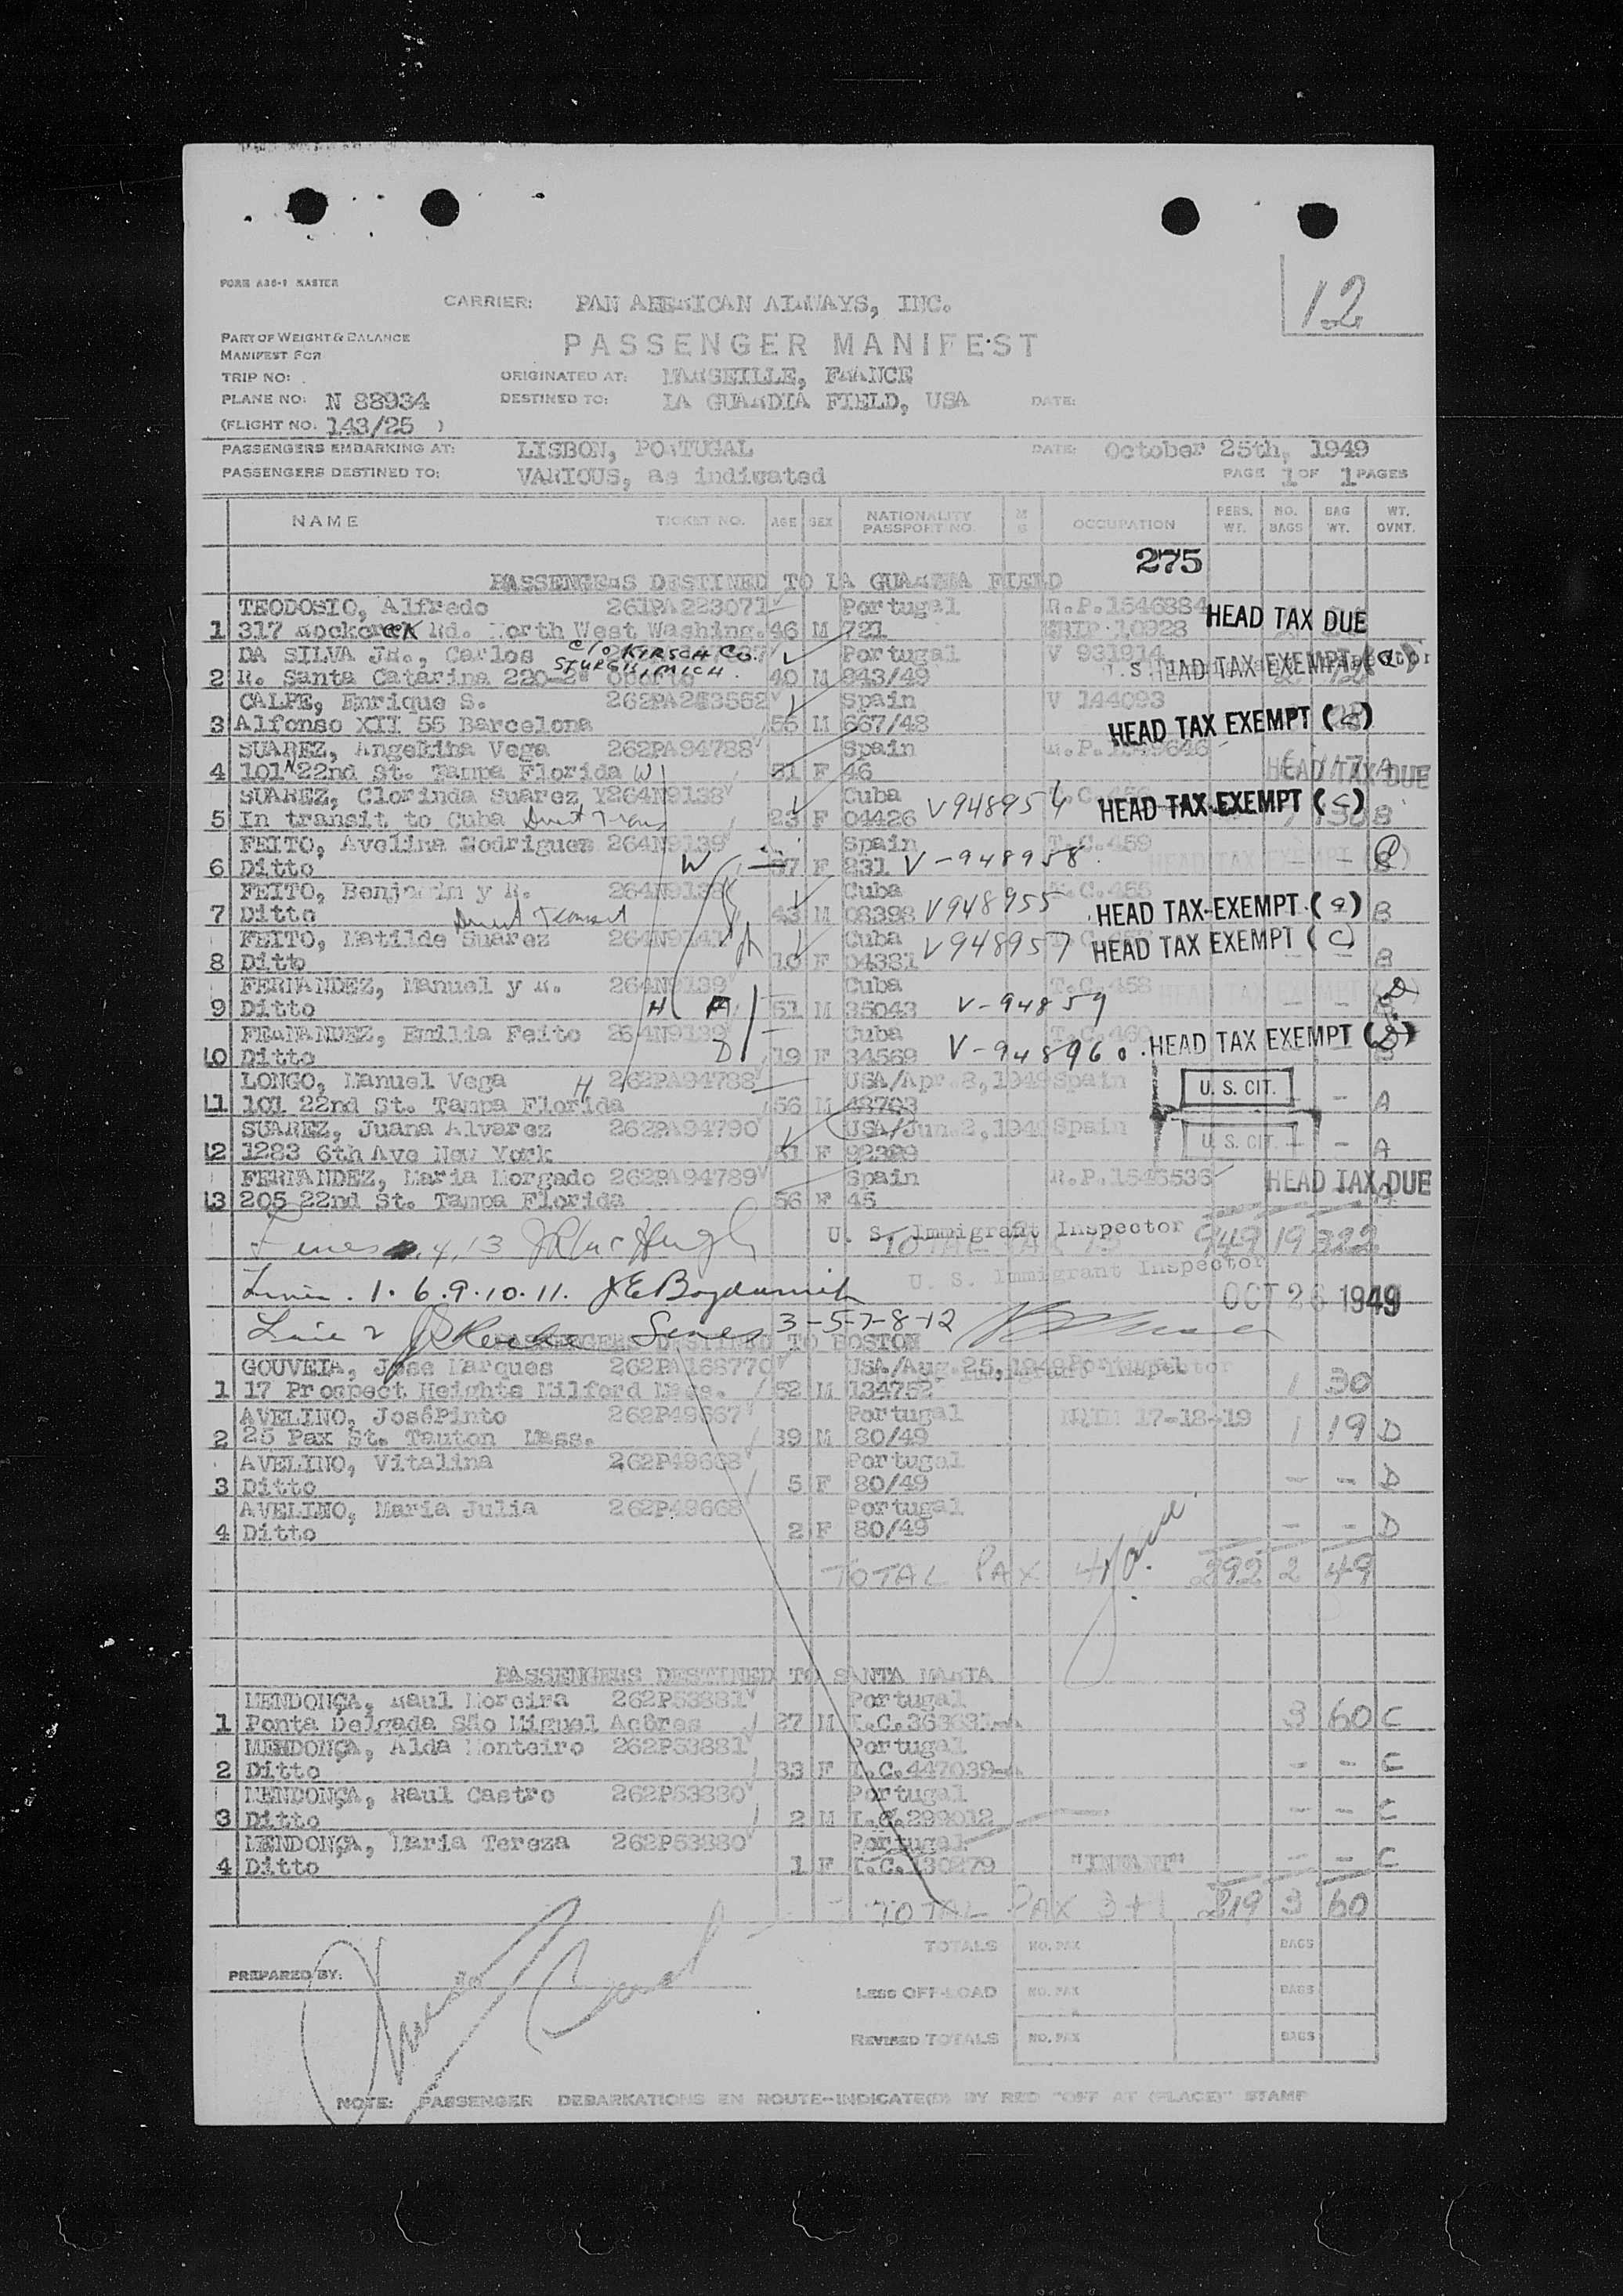 12
FORM A36-1 MASTER
CARRIER: PAN AMERICAN AIRWAYS, INC.
PART OF WEIGHT & BALANCE
MANIFEST FOR
PASSENGER MANIFEST
TRIP NO: ORIGINATED AT: MARSEILLE, FRANCE
PLANE NO: N 88934 DESTINED TO: LA GUARDIA FIELD, USA DATE:
(FLIGHT NO: 143/25 )
PASSENGERS EMBARKING AT: LISBON, PORTUGAL DATE: October 25th, 1949
PASSENGERS DESTINED TO: VARIOUS, as indicated PAGE 1 OF 1 PAGES
NAME TICKET NO. AGE SEX NATIONALITY PASSPORT NO. OCCUPATION PERS. WT. NO. BAGS BAG WT. WT. OVNT.
275
PASSENGERS DESTINED TO LA GUARDIA FIELD
TEODOSIO, Alfredo 261PA223071 Portugal R.P.1546384 HEAD TAX DUE
1 317 Rd. North West Washing. 46 M 721 10928
DA SILVA JR., Carlos c/o KIRSCH CO. Portugal V 931914
2 R. Santa Catarina 220-2º STURGIS, MICH. 40 M 943/49 HEAD TAX EXEMPT (a)
CALPE, Enrique S. 262PA243552 Spain V 144093
3 Alfonso XII 55 Barcelona 55 M 667/48 HEAD TAX EXEMPT (c)
SUAREZ, Angelina Vega 262PA94788 Spain R.P.1549646
4 101 N 22nd St. Tampa Florida W 51 F 46 HEAD TAX DUE
SUAREZ, Clorinda Suarez Y 264N9138 Cuba T.C.456
5 In transit to Cuba 23 F 04426 V948954 HEAD TAX EXEMPT (c) B
FEITO, Avelina Rodriguez 264N9139 Spain T.C.459
6 Ditto W 37 F 231 V-948958 HEAD TAX EXEMPT
FEITO, Benjamin y R. 264N9138 Cuba T.C.455
7 Ditto Direct Transit 43 M 08398 V948955 HEAD TAX EXEMPT (a) B
FEITO, Matilde Suarez 264N9141 Cuba
8 Ditto 10 F 04381 V948957 HEAD TAX EXEMPT (C) B
FERNANDEZ, Manuel y R. 264N9139 Cuba T.C.458
9 Ditto H 51 M 35043 V-94859
FERNANDEZ, Emilia Feito 264N9139 Cuba T.C.460
10 Ditto 19 F 34569 V-948960. HEAD TAX EXEMPT
LONGO, Manuel Vega H 262PA94788 USA/Apr.8,1949 Spain U. S. CIT.
11 101 22nd St. Tampa Florida 56 M 48703 - A
SUAREZ, Juana Alvarez 262PA94790 USA/Jun.2,1949 Spain U. S. CIT.
12 1283 6th Ave New York 51 F 92389 - A
FERNANDEZ, Maria Morgado 262PA94789 Spain R.P.1546536 HEAD TAX DUE
13 205 22nd St. Tampa Florida 56 F 45 A
Lines 4, 13 U. S. Immigrant Inspector 949 19 322
Lines. 1. 6. 9. 10. 11. U. S. Immigrant Inspector OCT 26 1949
Line 2 Lines 3-5-7-8-12
PASSENGERS DESTINED TO BOSTON
GOUVEIA, Jose Marques 262PA168770 USA/Aug.25,1948 Portugal
1 17 Prospect Heights Milford Mass. 52 M 134752 1 30
AVELINO, José Pinto 262P49667 Portugal 17-18-19
2 25 Pax St. Tauton Mass. 39 M 80/49 1 19 D
AVELINO, Vitalina 262P49668 Portugal
3 Ditto 5 F 80/49 - - D
AVELINO, Maria Julia 262P49668 Portugal
4 Ditto 2 F 80/49 - - D
TOTAL PAX 4 292 2 49
PASSENGERS DESTINED TO SANTA MARIA
MENDONÇA, Raul Moreira 262P53881 Portugal
1 Ponta Delgada São Miguel Açôres 27 M 3 60 C
MENDONÇA, Alda Monteiro 262P53881 Portugal
2 Ditto 33 F I.C.447039 - - C
MENDONÇA, Raul Castro 262P53880 Portugal
3 Ditto 2 M I.C.299012 - - C
MENDONÇA, Maria Tereza 262P53880 Portugal
4 Ditto 1 F I.C.130279 "INFANT" - - C
TOTAL PAX 3+1 219 3 60
TOTALS NO. PAX BAGS
PREPARED BY:
LESS OFF-LOAD NO. PAX BAGS
REVISED TOTALS NO. PAX BAGS
NOTE: PASSENGER DEBARKATIONS EN ROUTE-INDICATE(D) BY RED "OFF AT (PLACE)" STAMP